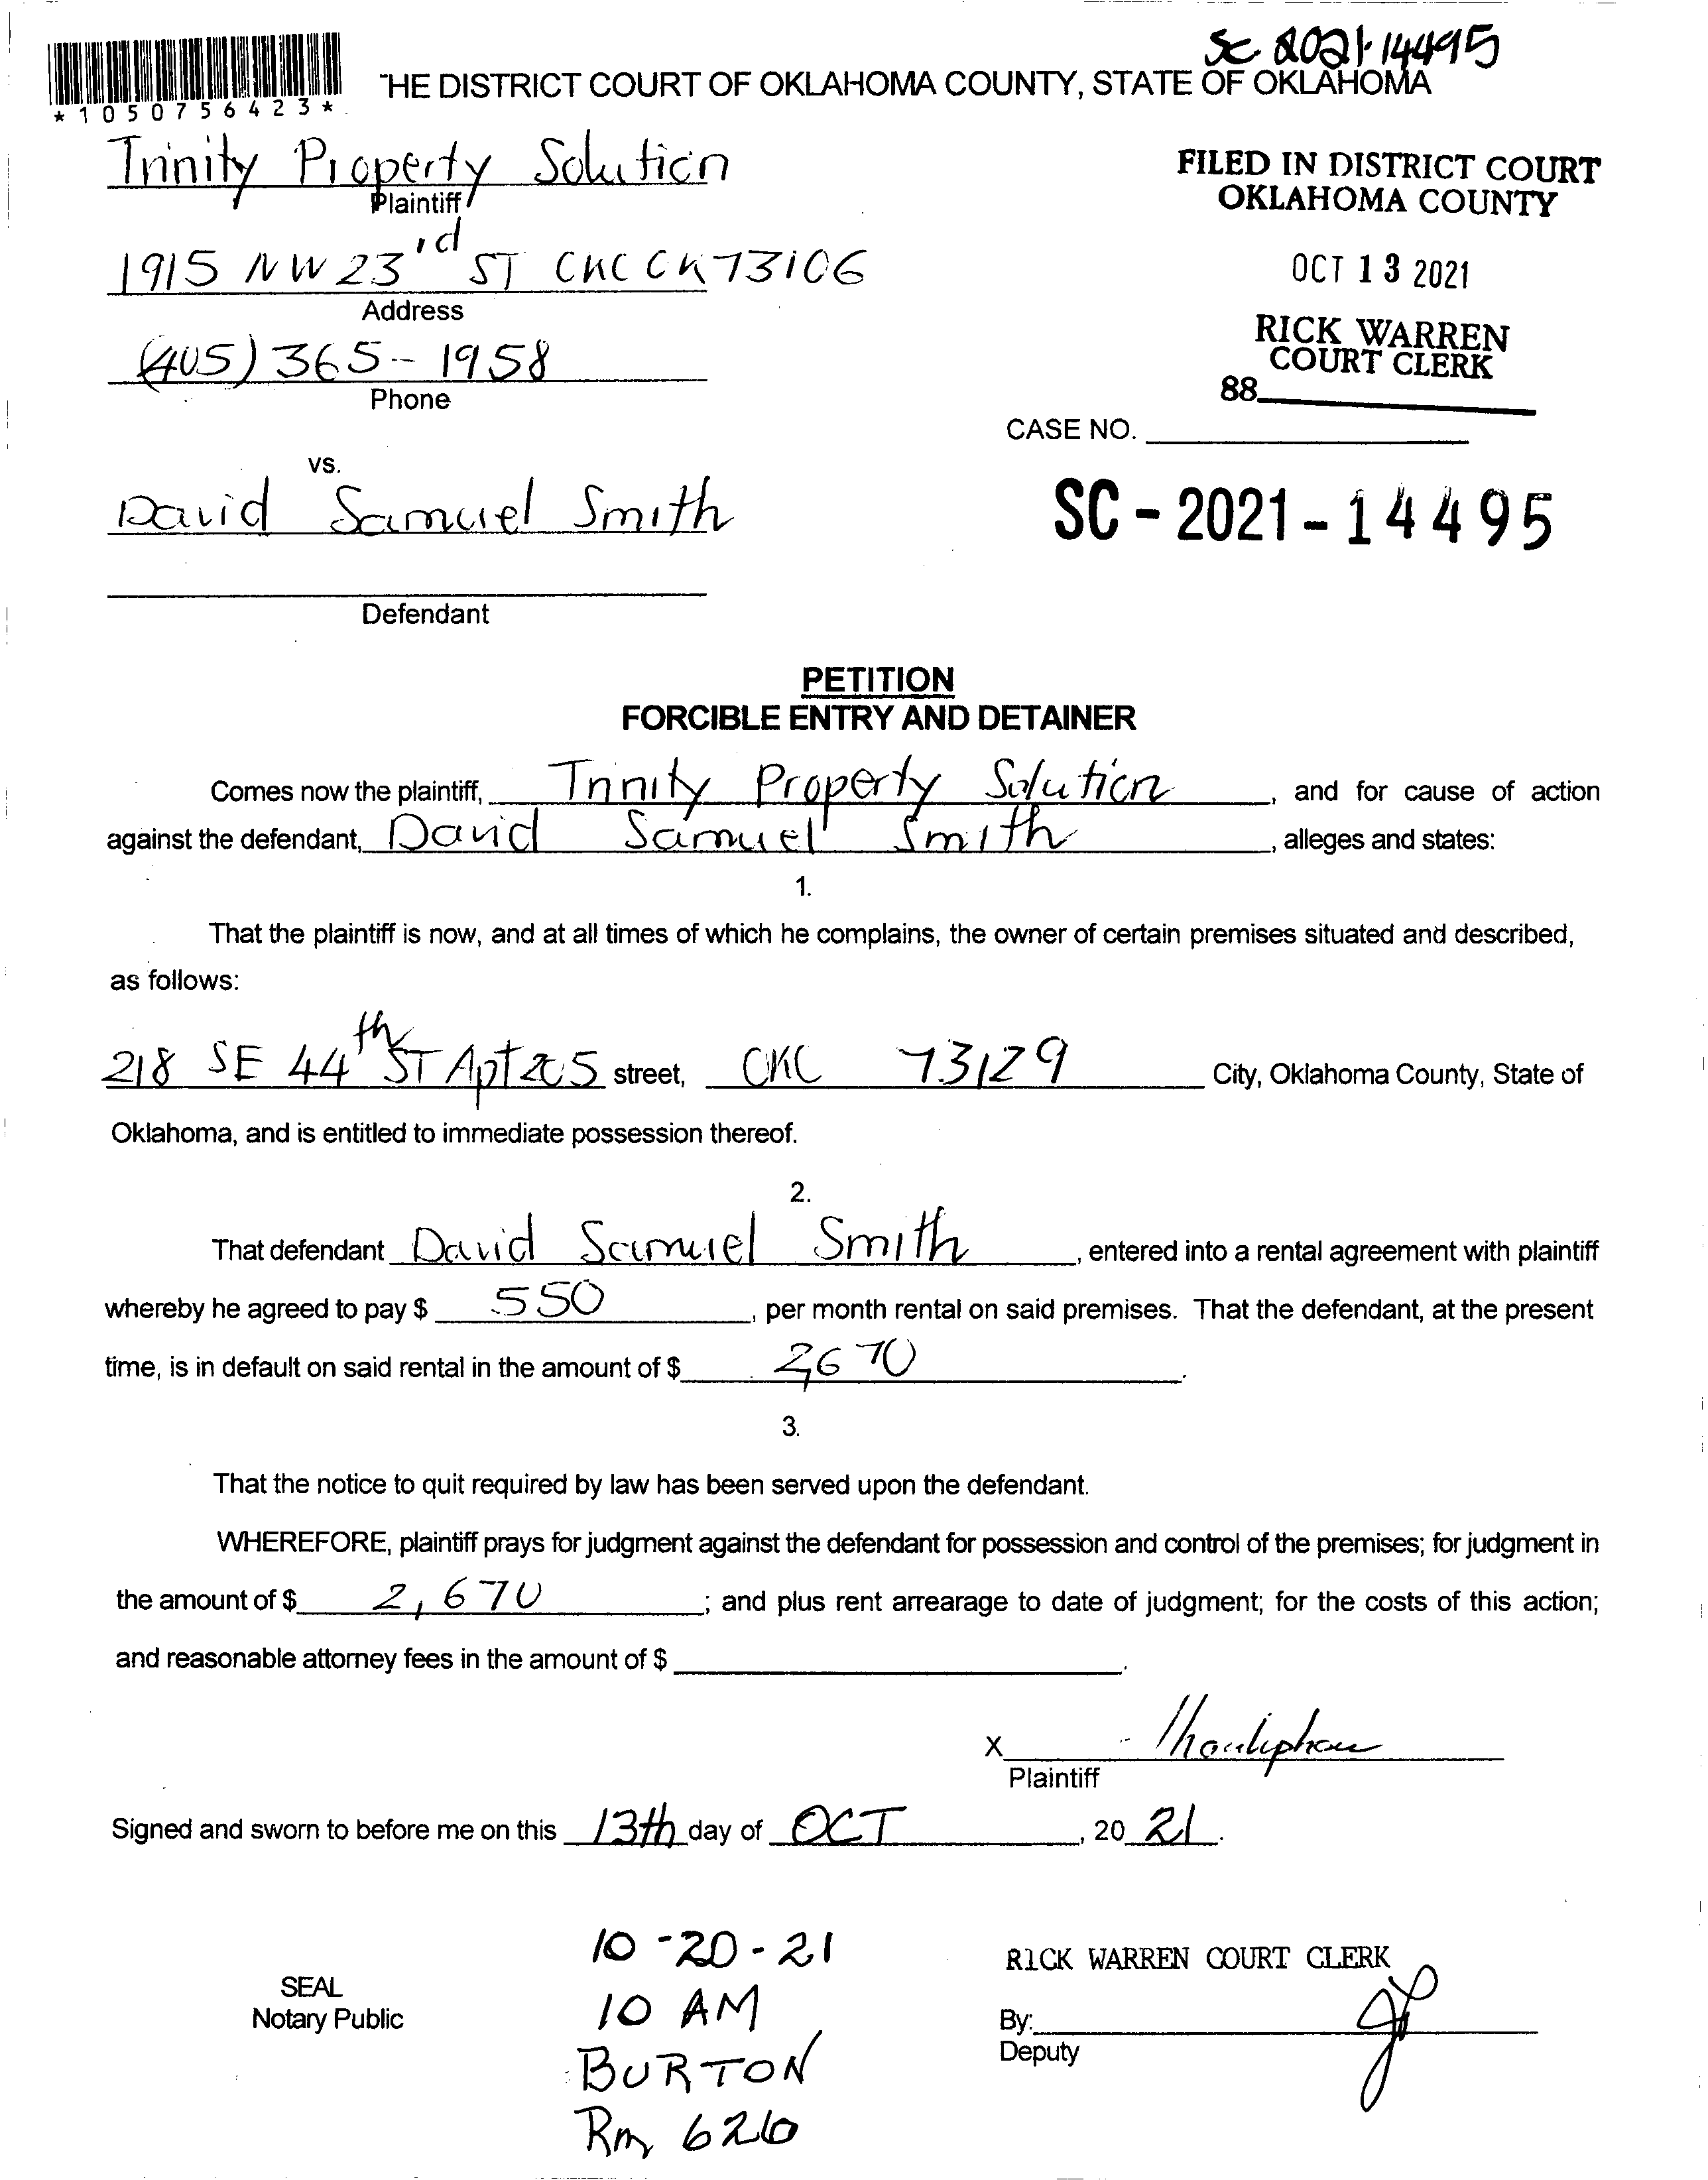 SC 2021-14495
*1050756423*
THE DISTRICT COURT OF OKLAHOMA COUNTY, STATE OF OKLAHOMA
Trinity Property Solution
Plaintiff
FILED IN DISTRICT COURT
OKLAHOMA COUNTY
1915 NW 23rd ST OKC OK 73106
Address
OCT 13 2021
(405) 365-1958
Phone
RICK WARREN
COURT CLERK
88
CASE NO.
vs.
David Samuel Smith
SC - 2021 - 14495
Defendant
PETITION
FORCIBLE ENTRY AND DETAINER
Comes now the plaintiff, Trinity Property Solution, and for cause of action
against the defendant, David Samuel Smith, alleges and states:
1.
That the plaintiff is now, and at all times of which he complains, the owner of certain premises situated and described,
as follows:
218 SE 44th ST Apt 205 street, OKC 73129 City, Oklahoma County, State of
Oklahoma, and is entitled to immediate possession thereof.
2.
That defendant David Samuel Smith, entered into a rental agreement with plaintiff
whereby he agreed to pay $ 550, per month rental on said premises. That the defendant, at the present
time, is in default on said rental in the amount of $ 2,670.
3.
That the notice to quit required by law has been served upon the defendant.
WHEREFORE, plaintiff prays for judgment against the defendant for possession and control of the premises; for judgment in
the amount of $ 2,670; and plus rent arrearage to date of judgment; for the costs of this action;
and reasonable attorney fees in the amount of $ .
X
Plaintiff
Signed and sworn to before me on this 13th day of OCT, 20 21.
10-20-21
10 AM
BURTON
Rm 626
SEAL
Notary Public
RICK WARREN COURT CLERK
By:
Deputy